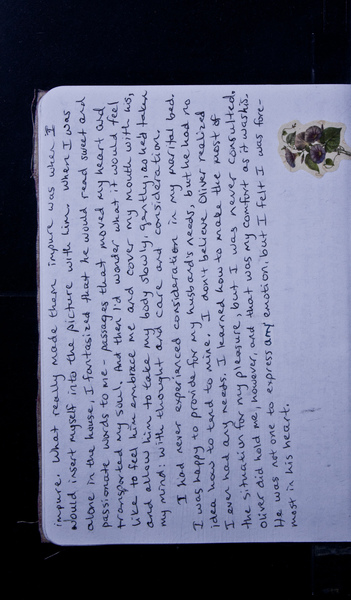 impure. What really made them impure was when I
would insert myself into the picture with him. When I was
alone in the house, I fantasized that he would read sweet and
passionate words to me - passages that moved my heart and
transported my soul. And then I'd wonder what it would feel
like to feel him embrace me and cover my mouth with his,
and allow him to take my body slowly, gently, as he'd taken
my mind: with thought and care and consideration.
I had never experienced consideration in my marital bed.
I was happy to provide for my husband's needs, but he had no
idea how to tend to mine. I don't believe Oliver realized
I even had any needs. I learned how to make the most of
the situation for my pleasure, but I was never consulted.
Oliver did hold me, however, and that was my comfort as it was his.
He was not one to express any emotion, but I felt I was fore-
most in his heart.